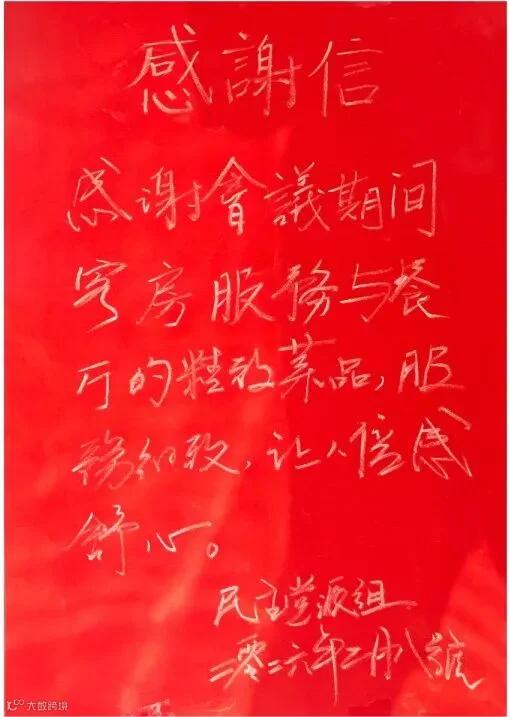 感謝信
感谢會議期间
客房服務与餐
厅的精致菜品,服
務细致,让人倍感
舒心。
民主党派组
二零二六年二月八號
大数跨境